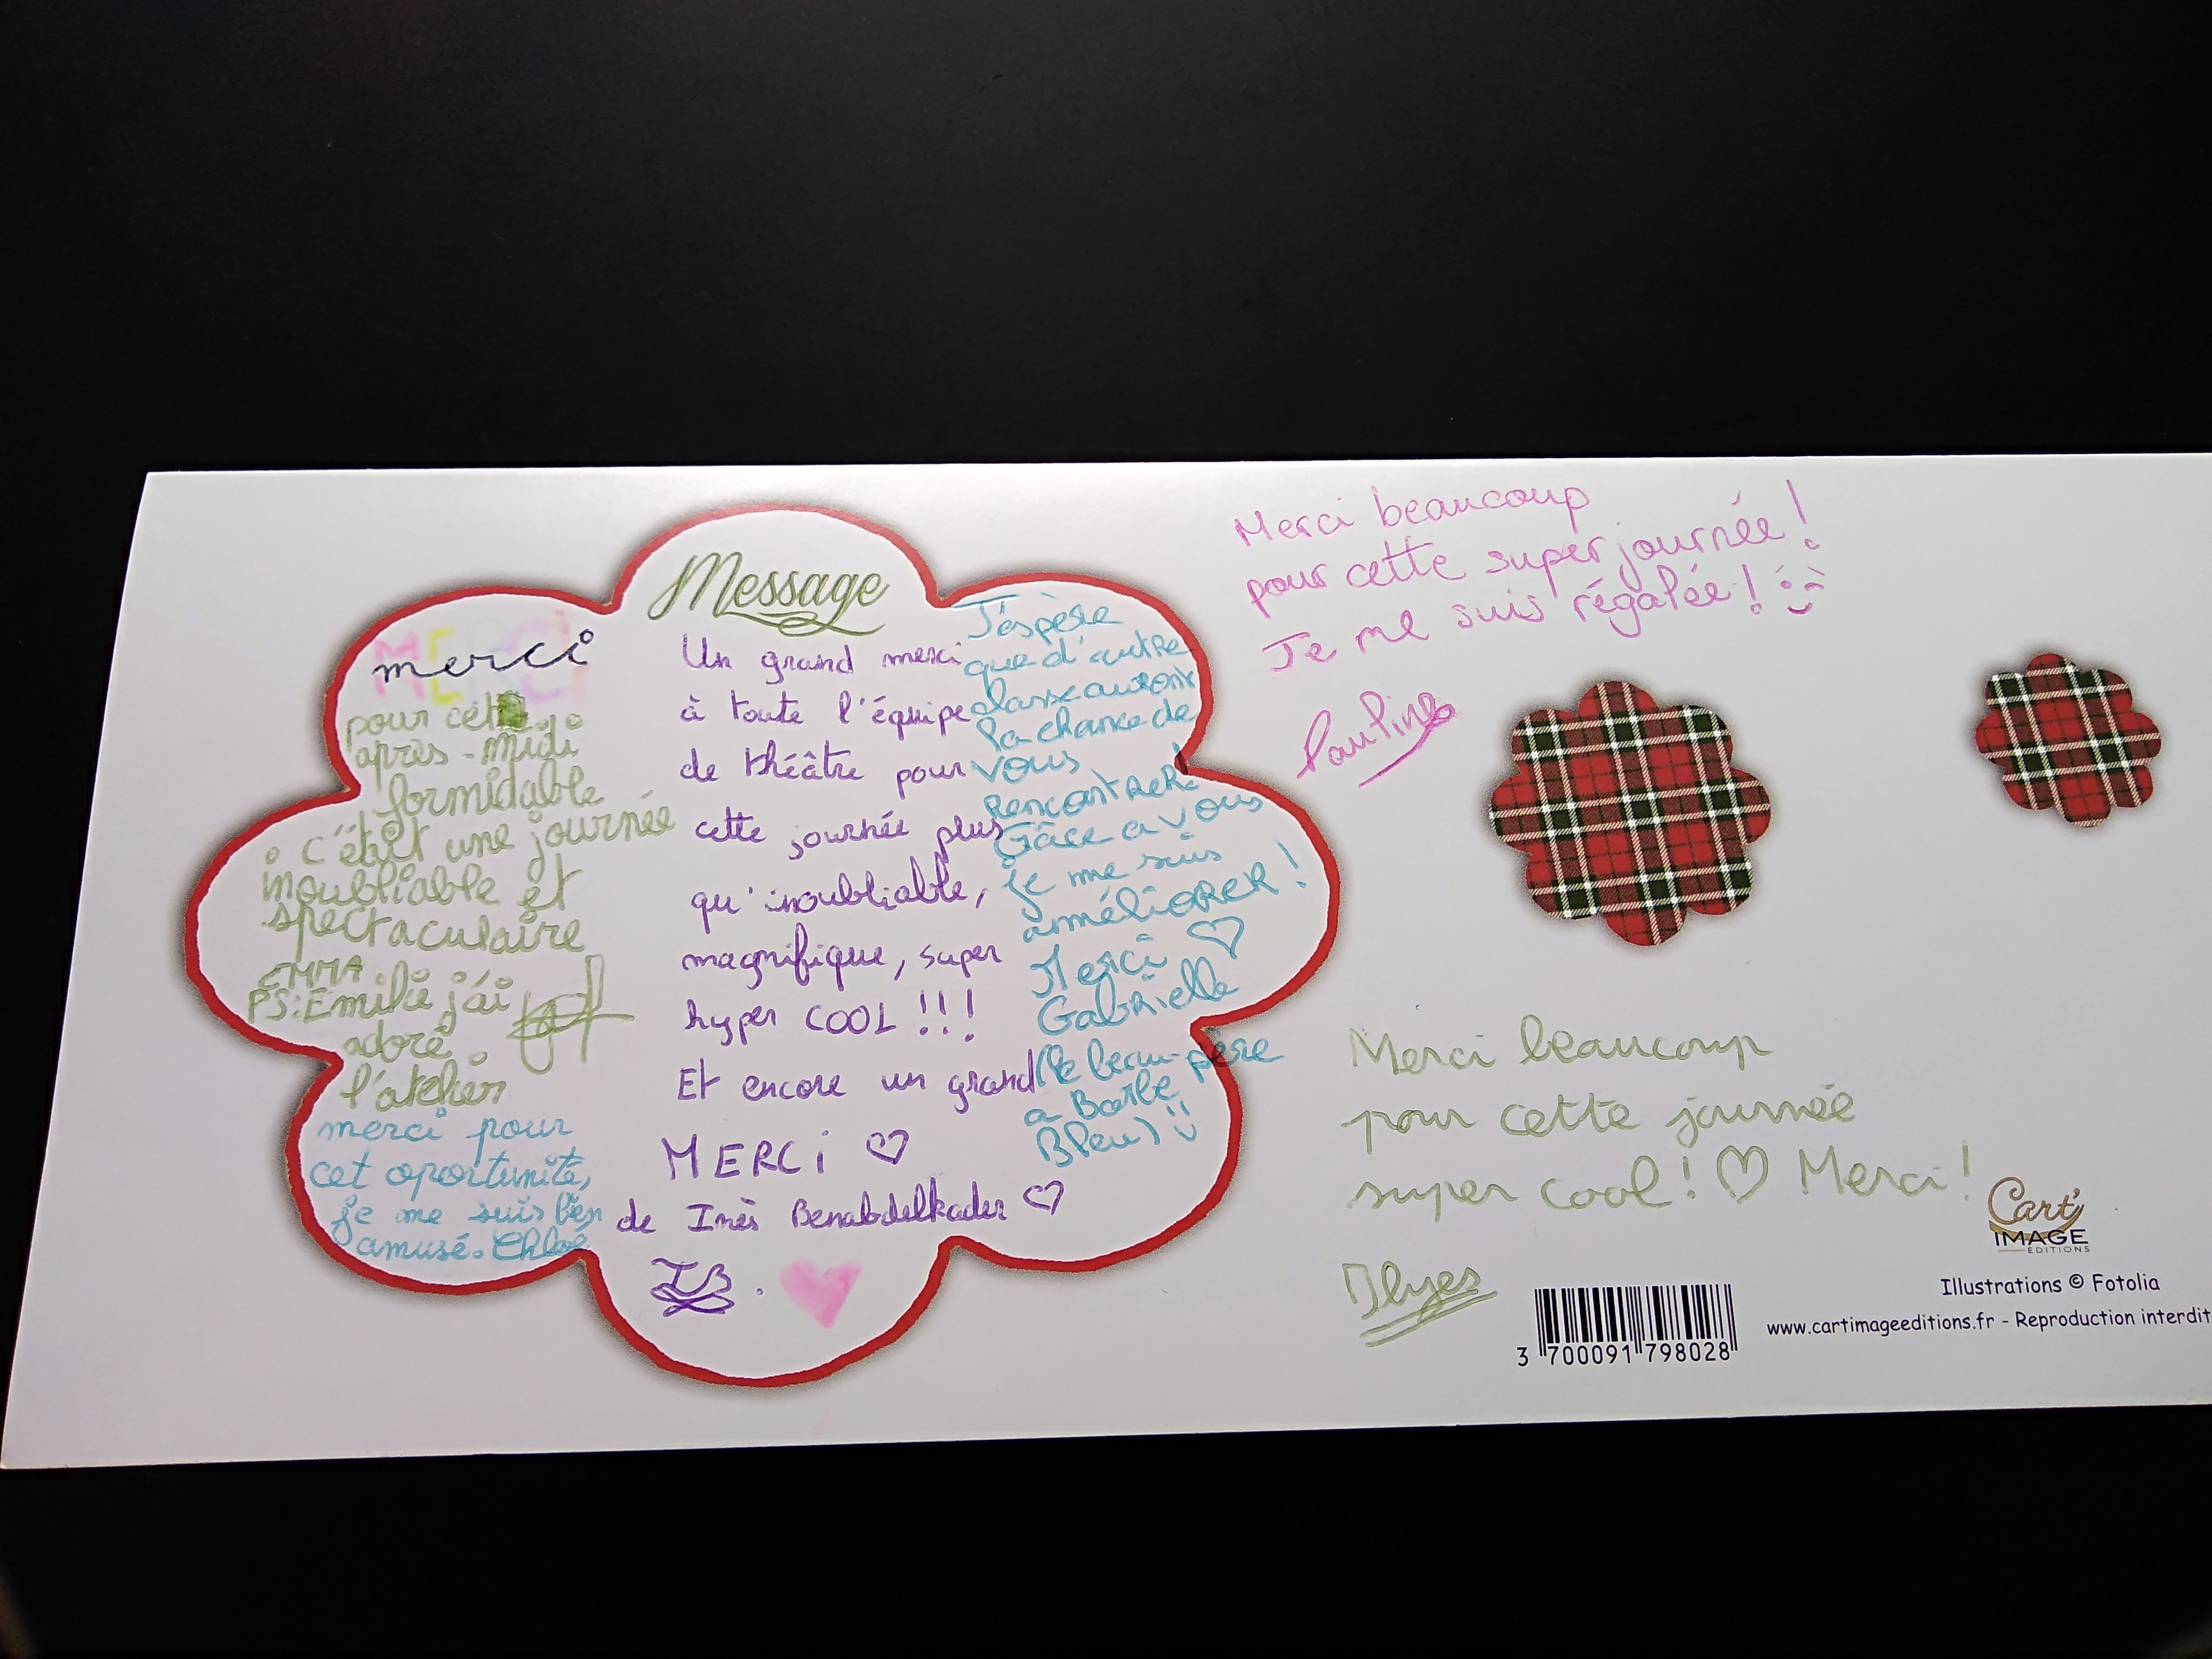 Message
MERCI
merci
pour cette
après-midi
formidable
c'était une journée
inoubliable et
spectaculaire
EMMA
PS: Emilie j'ai
adoré
l'atelier
merci pour
cet oportunité,
je me suis bien
amusé. Chloé
Un grand merci
à toute l'équipe
de théâtre pour
cette journée plus
qu'inoubliable,
magnifique, super
hyper COOL !!!
Et encore un grand
MERCi ♡
de Inès Benabdelkader ♡
IB.
J'éspère
que d'autre
classe auront
la chance de
vous
rencontrer!
Grâce a vous
je me suis
amméliorer!
Merci ♡
Gabrielle
(le beau-père
a Barbe
Bleu) :)
Merci beaucoup
pour cette super journée!
Je me suis régalée! :)
Pauline
Merci beaucoup
pour cette journée
super cool! ♡ Merci!
Ilyes
Cart'
IMAGE
EDITIONS
Illustrations © Fotolia
www.cartimageeditions.fr - Reproduction interdit
3 700091 798028